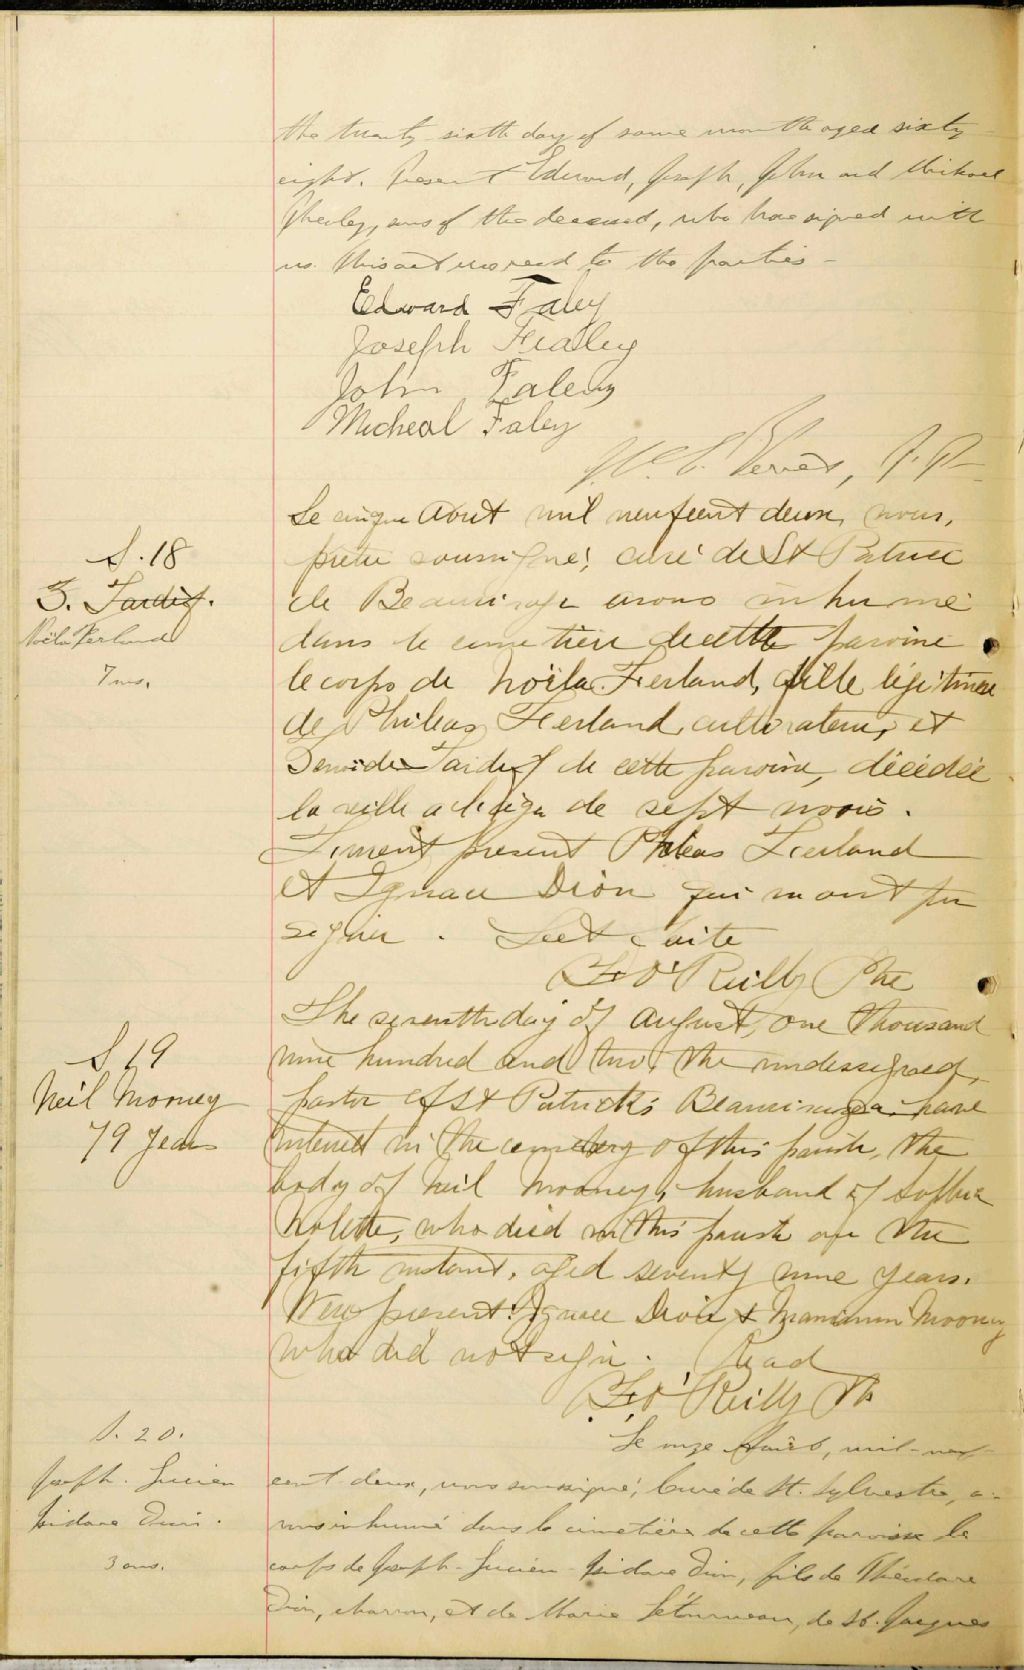 the twenty sixth day of same month aged sixty
eight. Present Edward, Joseph, John and Michael
Phealey, sons of the deceased, who have signed with
us. This act was read to the parties –
Edward Faley
Joseph Fealey
John Faley
Micheal Faley
Le cinque Aout mil neuf cent deux, nous,
S. 18
prêtre soussigné, curé de St Patrice
Z. Tardif.
de Beaurivage avons inhumé
Noëla Ferland
dans le cimetière de cette paroisse
7 ms.
le corps de Noëla Ferland, fille légitime
de Philéas Ferland, cultivateur, et
Tardif de cette paroisse, décédée
la veille a l'âge de sept mois.
Furent présent Philéas Ferland
et Ignace Dion qui n'ont pu
signer. Lect faite
F O'Reilly Ptre
The seventh day of August, one thousand
S 19
nine hundred and two, the undersigned,
Neil Mooney
pastor of St Patrick's Beaurivage have
79 years
interred in the cemetery of this parish, the
body of Neil Mooney, husband of Sophia
Nolette, who died in this parish on the
fifth instant, aged seventy nine years.
Were present: Ignace Dion & Mooney
who did not sign. Read
F O'Reilly Ptr
S. 20.
Le onze Août, mil-neuf-
Joseph-Lucien
cent deux, nous soussigné, Curé de St. Sylvestre, a-
Isidore Dion.
vons inhumé dans le cimetière de cette paroisse le
3 ans.
corps de Joseph-Lucien-Isidore Dion, fils de Théodore
Dion, charron, et de Marie Létourneau, de St. Jacques